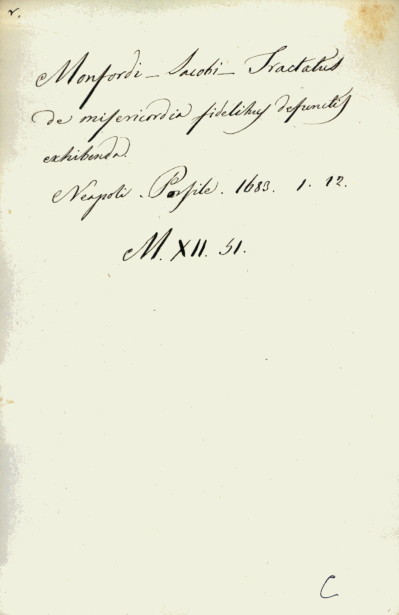 r.
Monfordi - Jacobi - Tractatus
de misericordia fidelibus defunctis
exhibenda.
Neapoli. Porfile. 1683. 1. 12.
M. XII. 51.
C